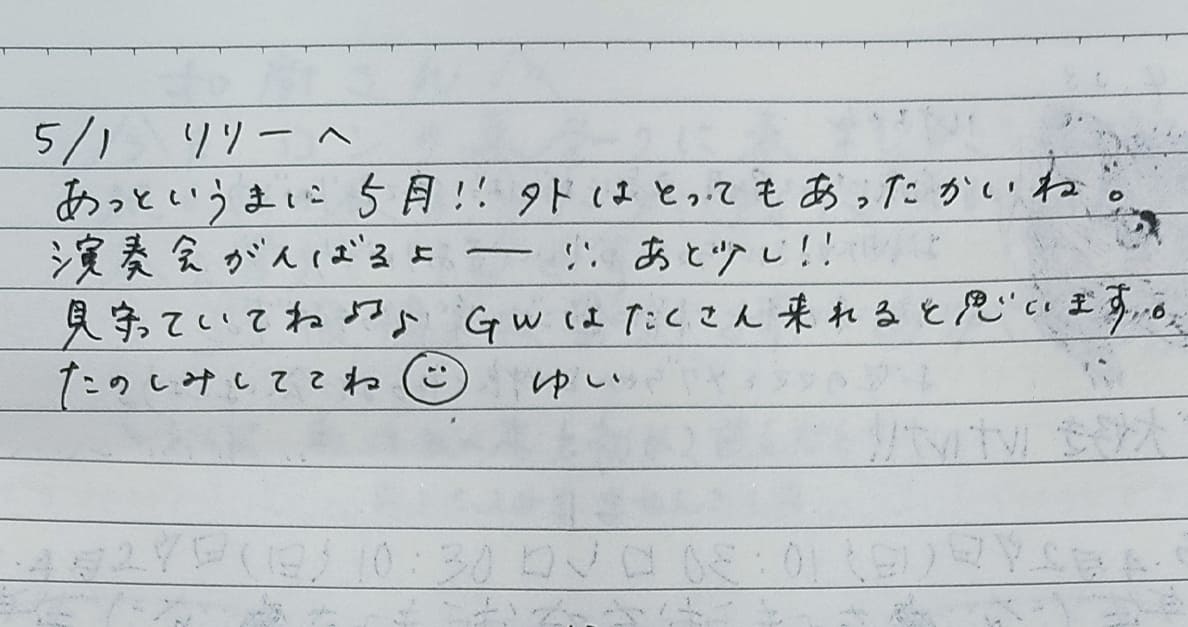 5/1 リリーへ
あっというまに5月!! 外はとってもあったかいね。
演奏会がんばるよー!! あと少し!!
見守っていてね♪♫♪ GWはたくさん来れると思います。
たのしみしててね☺ ゆい